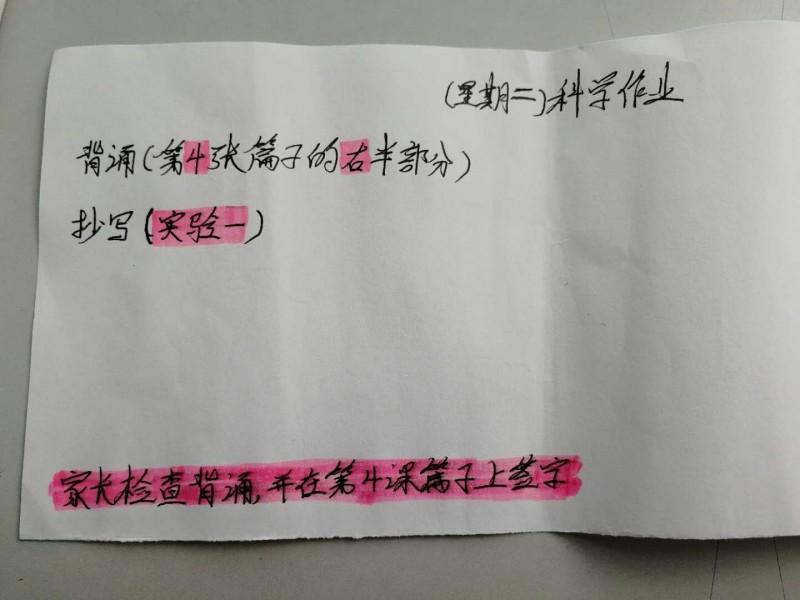 (星期二)科学作业
背诵(第4张篇子的右半部分)
抄写(实验一)
家长检查背诵,并在第4课篇子上签字